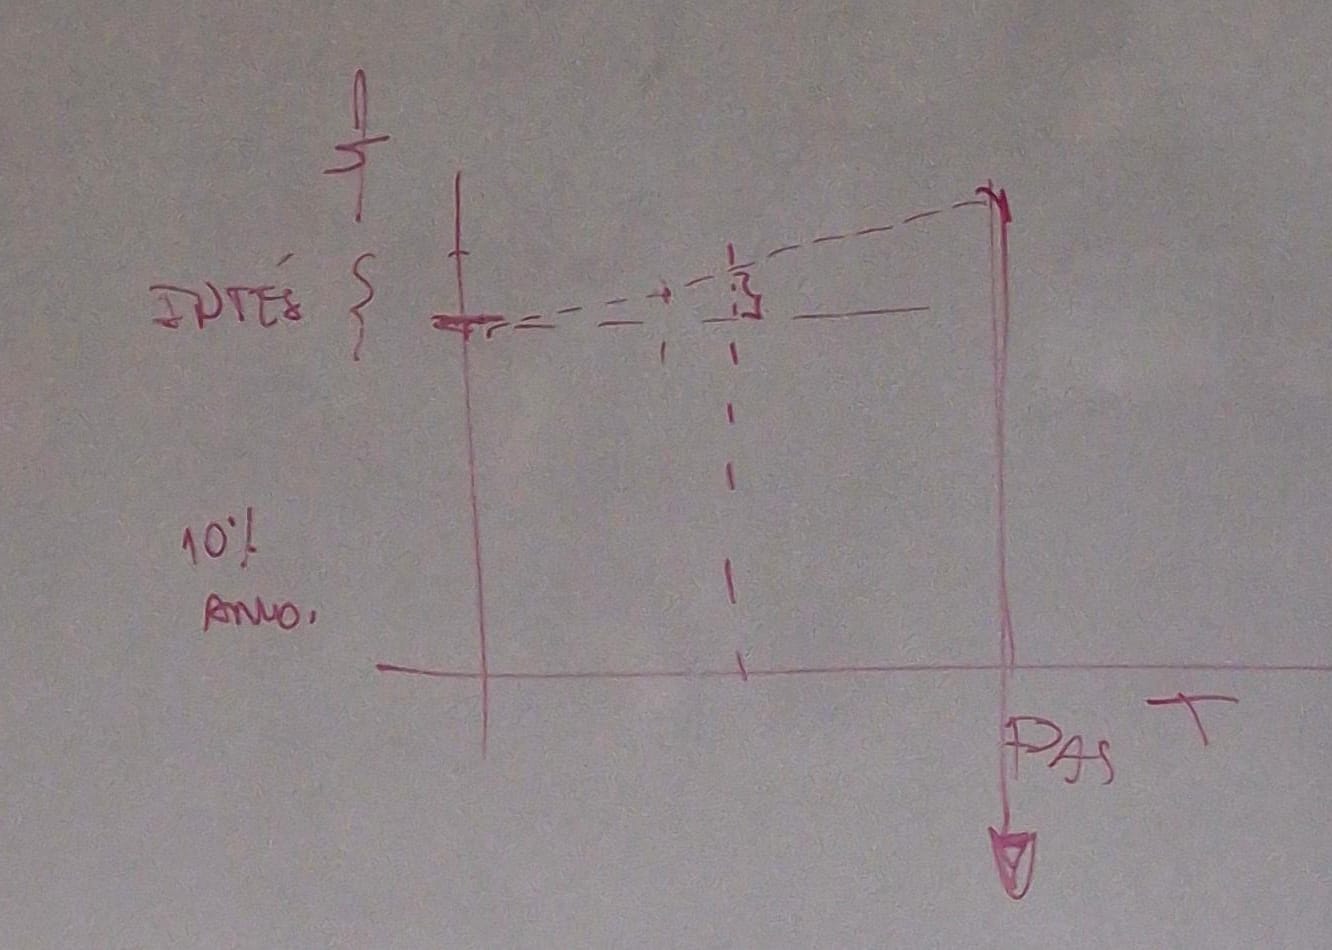 $
INTÉS
10%
ANNO.
PAS
T